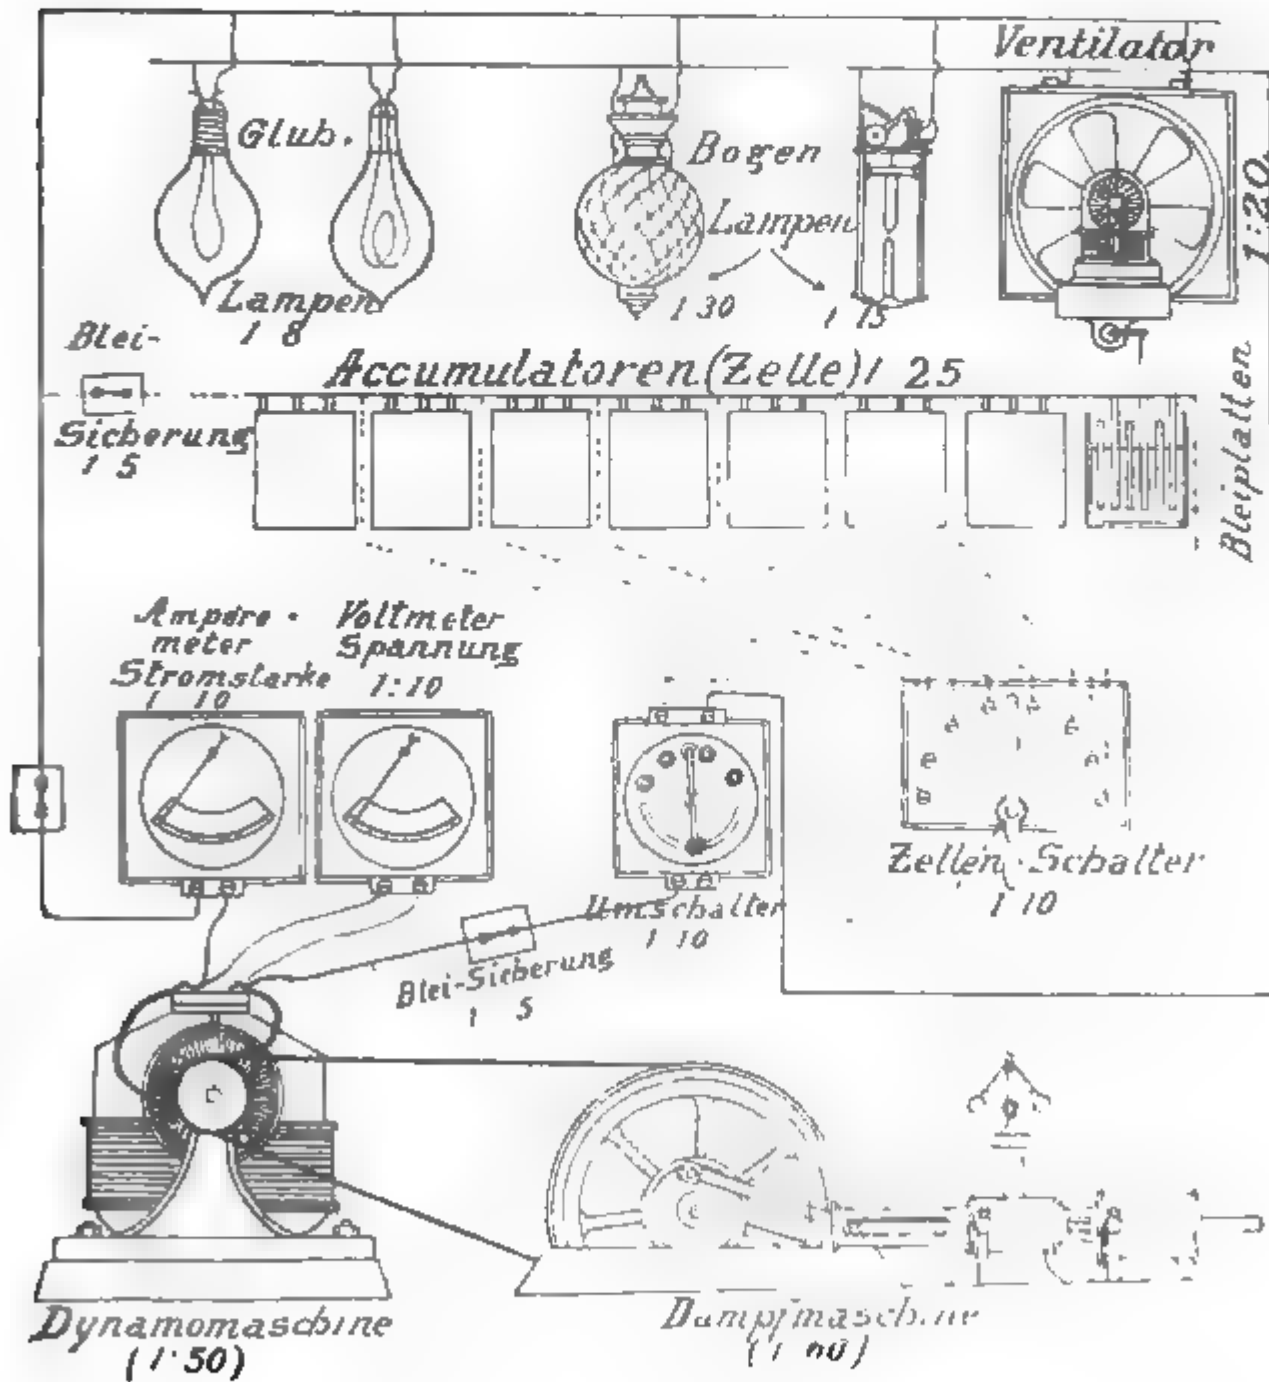 Ventilator
1:20.
Glüh.
Lampen
1 8
Bogen
Lampen
1 30
1 15
Blei-
Sicherung
1 5
Accumulatoren (Zelle) 1 25
Bleiplatten
Ampère-
meter
Stromstärke
1 10
Voltmeter
Spannung
1:10
Umschalter
1 10
Zellen-Schalter
1 10
Blei-Sicherung
1 5
Dynamomaschine
(1:50)
Dampfmaschine